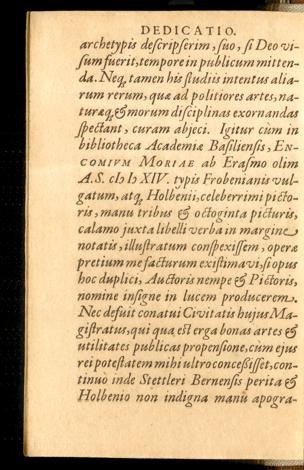 DEDICATIO.
archetypis descripserim, suo, si Deo vi-
sum fuerit, tempore in publicum mitten-
da. Neq, tamen his studiis intentus alia-
rum rerum, quæ ad politiores artes, na-
turæq, & morum disciplinas exornandas
spectant, curam abjeci. Igitur cùm in
bibliotheca Academiæ Basiliensis, EN-
COMIVM MORIAE ab Erasmo olim
A.S. cIↄ Iↄ XIV. typis Frobenianis vul-
gatum, atq, Holbenii, celeberrimi picto-
ris, manu tribus & octoginta picturis,
calamo juxta libelli verba in margine
notatis, illustratum conspexissem, operæ
pretium me facturum existimavi, si opus
hoc duplici, Auctoris nempe & Pictoris,
nomine insigne in lucem producerem.
Nec defuit conatui Civitatis hujus Ma-
gistratus, qui qua est erga bonas artes &
utilitates publicas propensione, cùm ejus
rei potestatem mihi ultro concessisset, con-
tinuò inde Stettleri Bernensis perita &
Holbenio non indigna manû apogra-